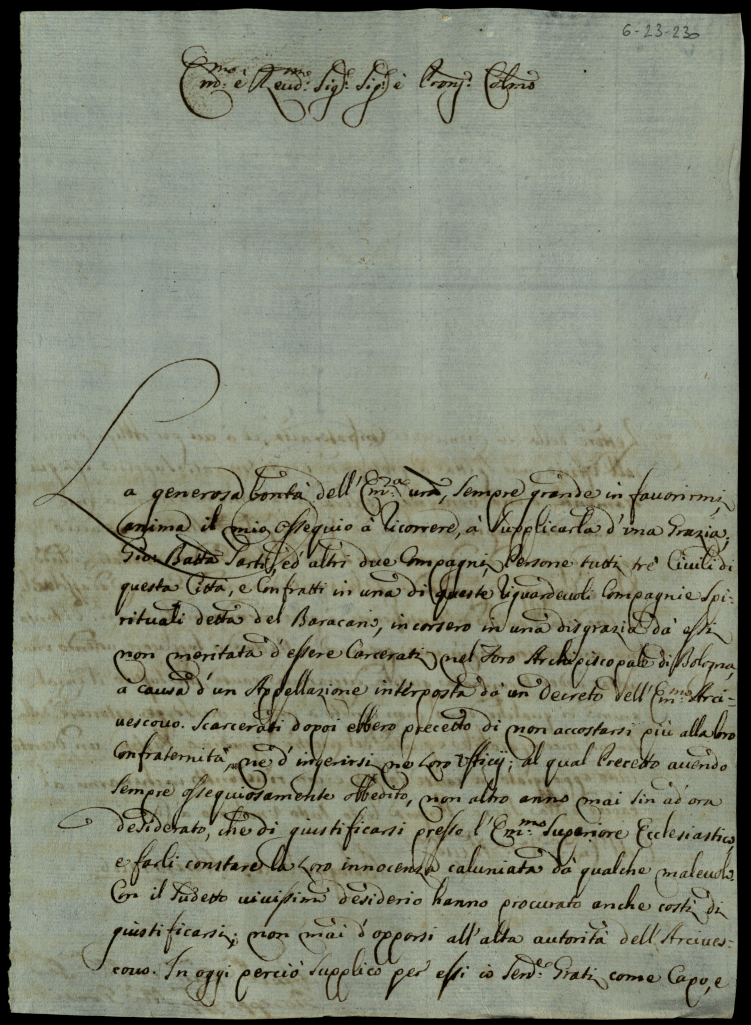 6-23-230
Em.mo e Reud.mo Sig.r Sig.r e Pron.e Colmo
La generosa bontà dell'Em.za vra, sempre grande in favorirmi,
anima il mio ossequio à ricorrere, à supplicarla d'una Grazia;
Gio: Batta Sarti, ed altri due Compagni, Persone tutti trè Ciuili di
questa Città, e Confratti in una di queste riguardeuoli Compagnie Spi-
rituali detta del Baracani, incorsero in una disgrazia dà essi
non meritata d'essere Carcerati nel Foro Archipiscopale di Bologna,
à causa d'un Appellazione interposta dà un decreto dell'Em.mo Arci-
uescouo. Scarcerati dopoi ebbero precetto di non accostarsi più alla loro
Confraternità, ne d'ingerirsi ne Loro Ufficij; al qual Precetto auendo
sempre ossequiosamente obbedito, non altro anno mai sin ad'ora
desiderato, che di giustificarsi presso l'Em.mo Superiore Ecclesiastico,
e farli constare la Loro innocenza caluniata dà qualche maleuolo.
Con il sudetto viuissimo desiderio hanno procurato anche costi di
giustificarsi; non mai d'opporsi all'alta autorità dell'Arciues-
couo. In oggi perciò supplico per essi io Ferd.o Grati come Capo, e